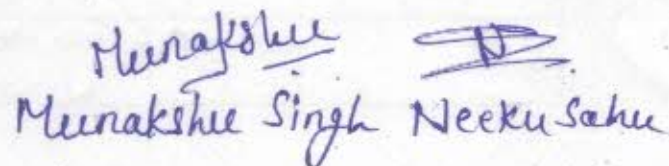 Munakshee
Munakshee Singh Neeku Sahu